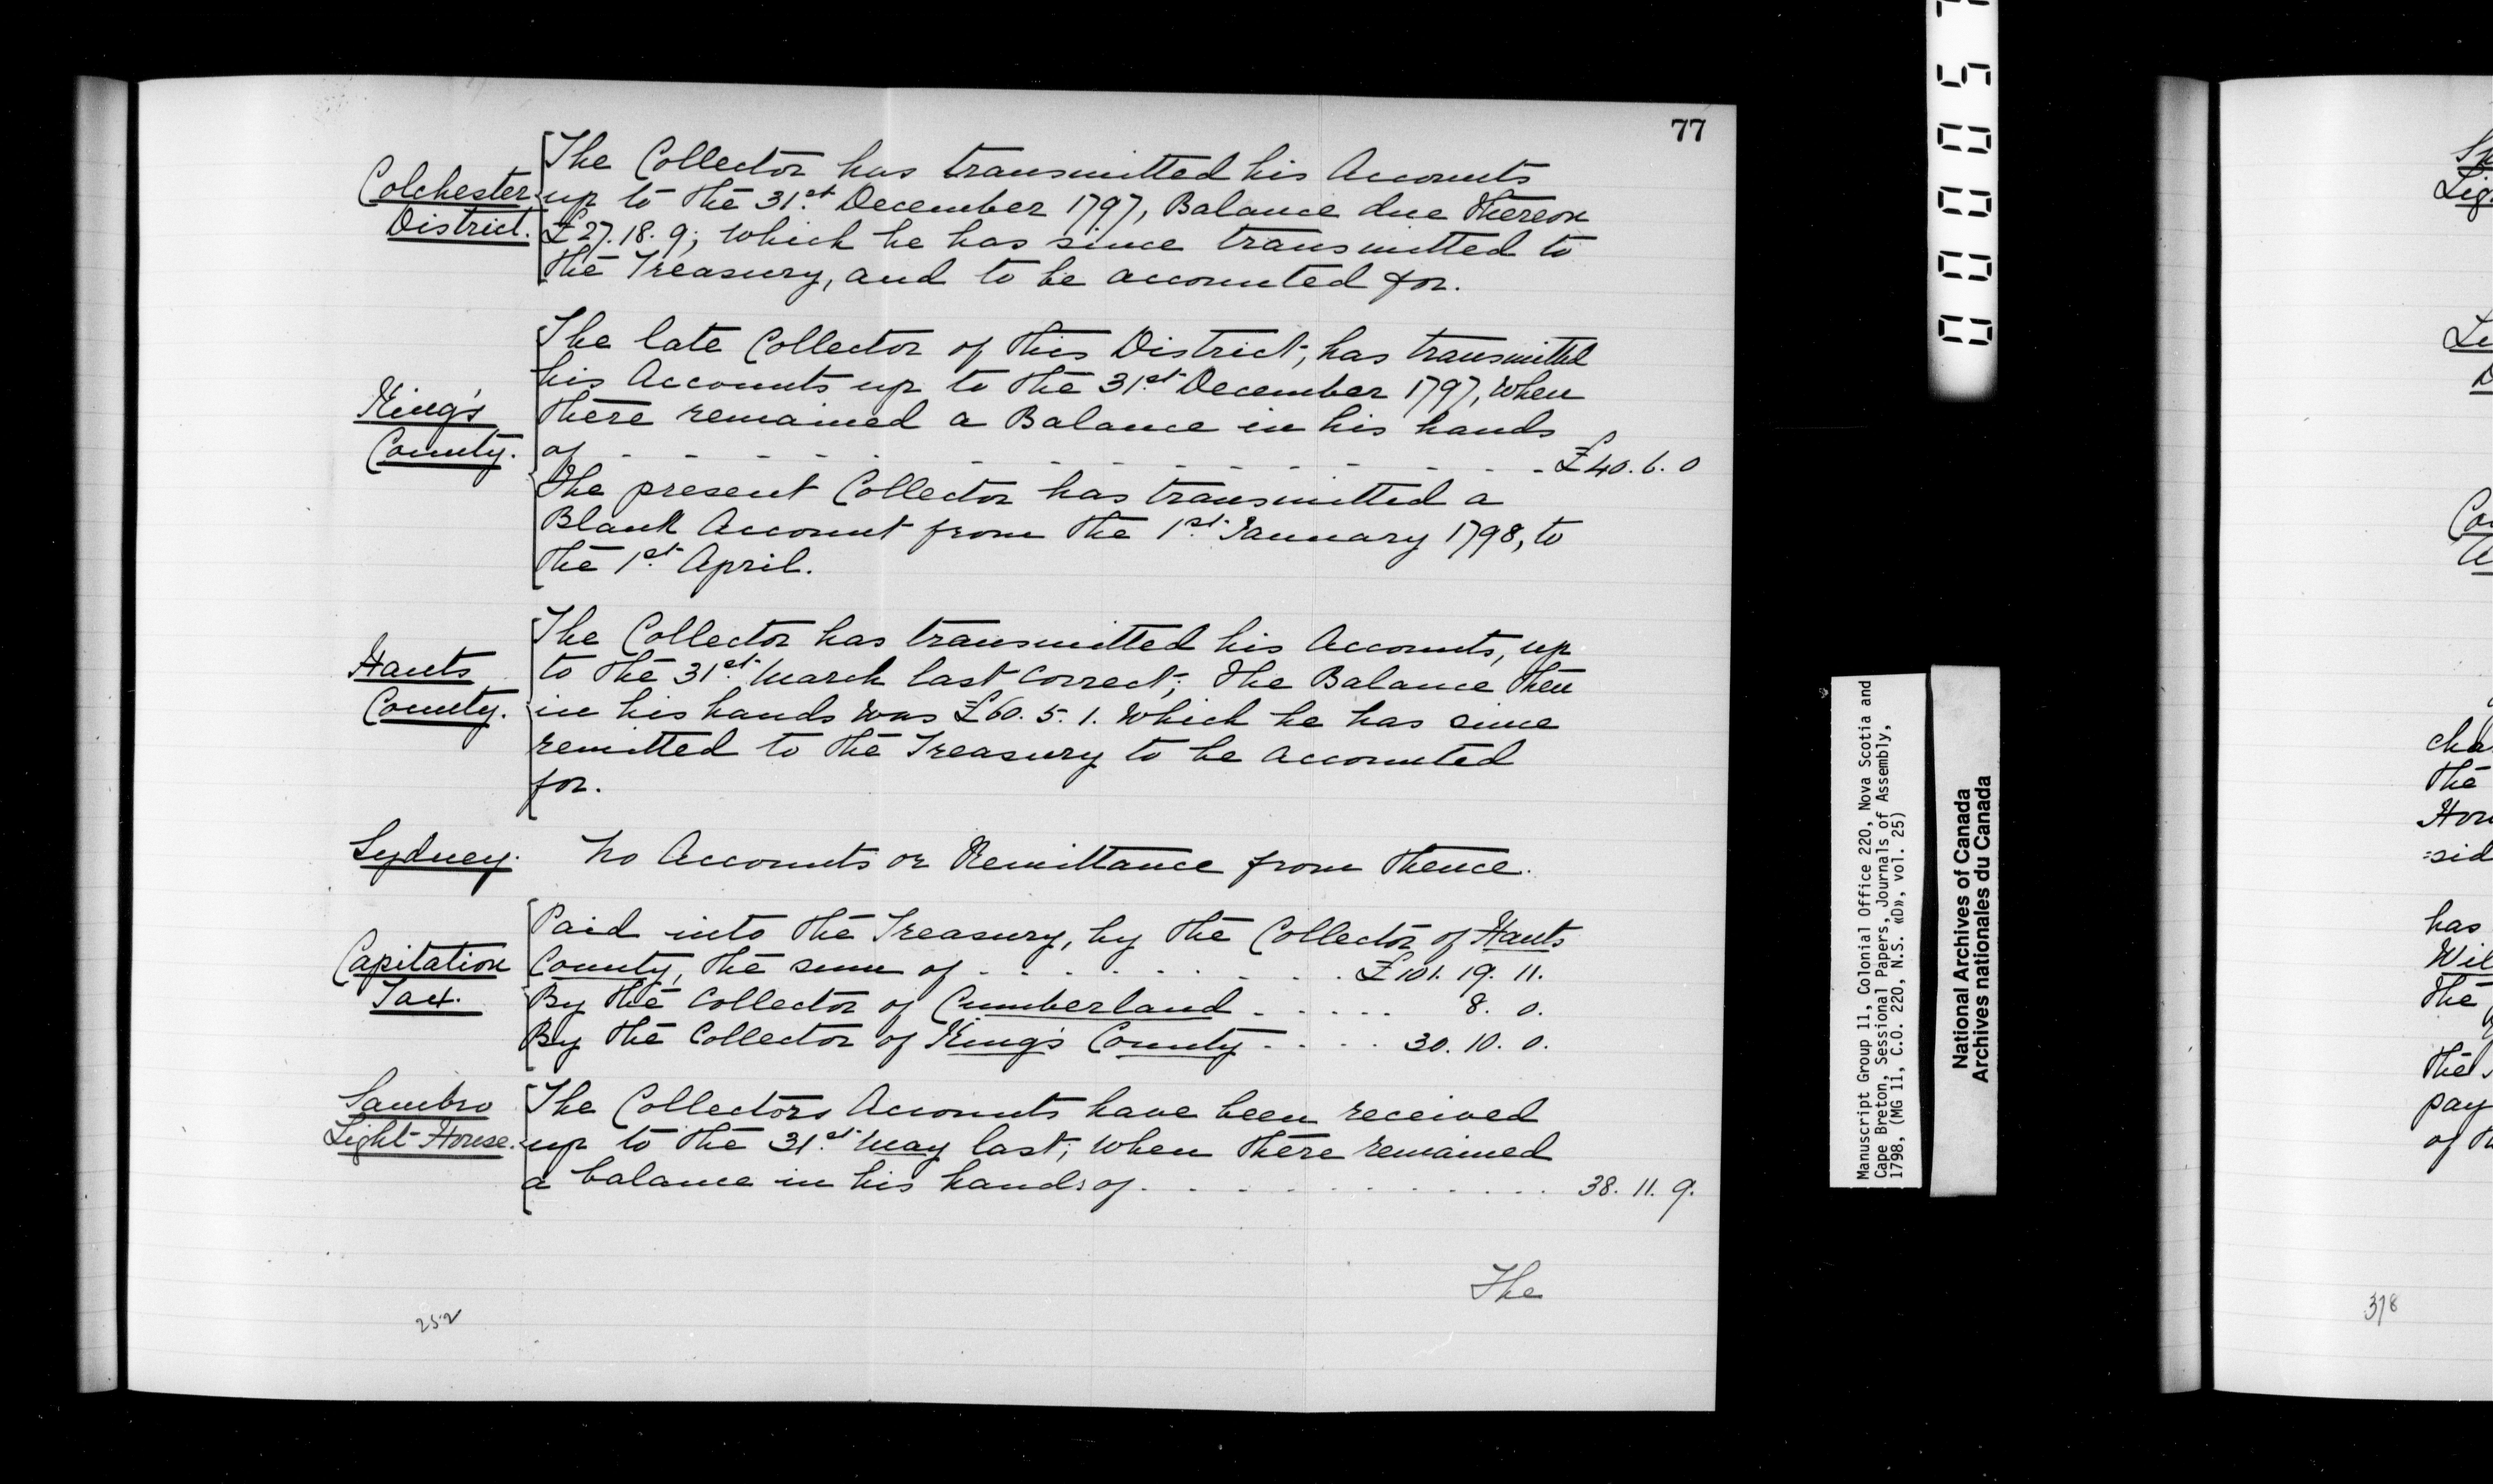 77
Colchester
District.
The Collector has transmitted his Accounts
up to the 31st December 1797, Balance due thereon
£27. 18. 9; which he has since transmitted to
the Treasury, and to be accounted for.
King's
County.
The late Collector of this District, has transmitted
his Accounts up to the 31st December 1797, when
there remained a Balance in his hands
of - - - - - - - - - - - - - £40. 6. 0
The present Collector has transmitted a
Blank Account from the 1st January 1798, to
the 1st April.
Hants
County.
The Collector has transmitted his Accounts, up
to the 31st March last correct; the Balance then
in his hands was £60. 5. 1. which he has since
remitted to the Treasury to be accounted
for.
Sydney. No Accounts or Remittance from thence.
Capitation
Tax.
Paid into the Treasury, by the Collector of Hants
County, the sum of - - - - - - - - - £101. 19. 11.
By the Collector of Cumberland - - - - - 8. 0.
By the Collector of King's County - - - - 30. 10. 0.
Sambro
Light-House.
The Collectors Accounts have been received
up to the 31st May last; when there remained
a balance in his hands of - - - - - - - - - - - - 38. 11. 9.
The
252
Manuscript Group 11, Colonial Office 220, Nova Scotia and
Cape Breton, Sessional Papers, Journals of Assembly,
1798, (MG 11, C.O. 220, N.S. «D», vol. 25)
National Archives of Canada
Archives nationales du Canada
cha
the
has
Wil
the
the
pay
318